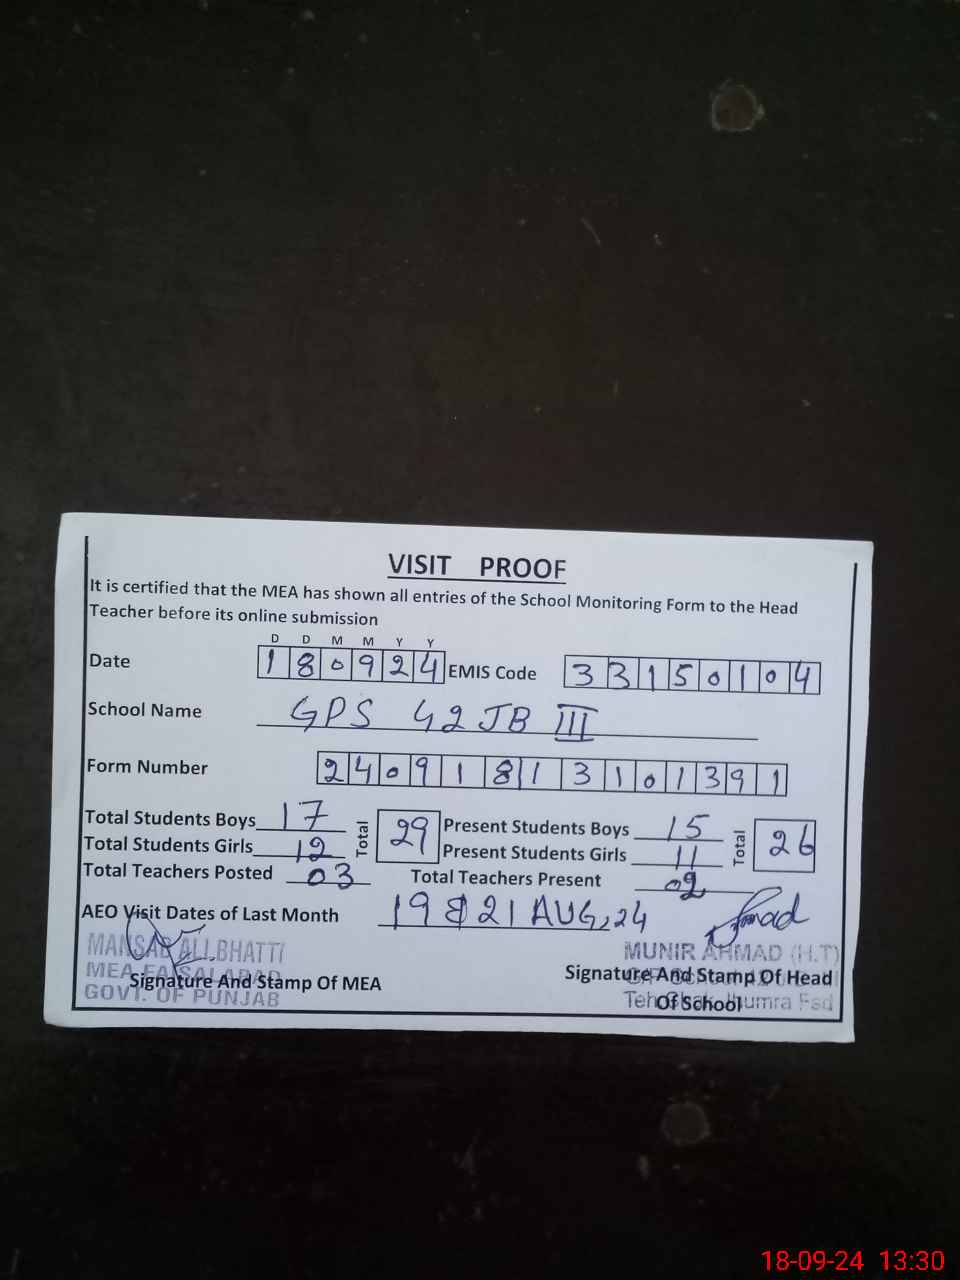 VISIT PROOF
It is certified that the MEA has shown all entries of the School Monitoring Form to the Head
Teacher before its online submission
D D M M Y Y
Date 1 8 0 9 2 4 EMIS Code 3 3 1 5 0 1 0 4
School Name GPS 42 JB III
Form Number 2 4 0 9 1 8 1 3 1 0 1 3 9 1
Total Students Boys 17 Total 29 Present Students Boys 15 Total 26
Total Students Girls 12 Present Students Girls 11
Total Teachers Posted 03 Total Teachers Present 02
AEO Visit Dates of Last Month 19 & 21 AUG, 24
MANSAB ALI BHATTI
MEA FAISALABAD
GOVT. OF PUNJAB
Signature And Stamp Of MEA
MUNIR AHMAD (H.T)
Signature And Stamp Of Head
Of School
Teh Chak Jhumra Fsd
18-09-24 13:30